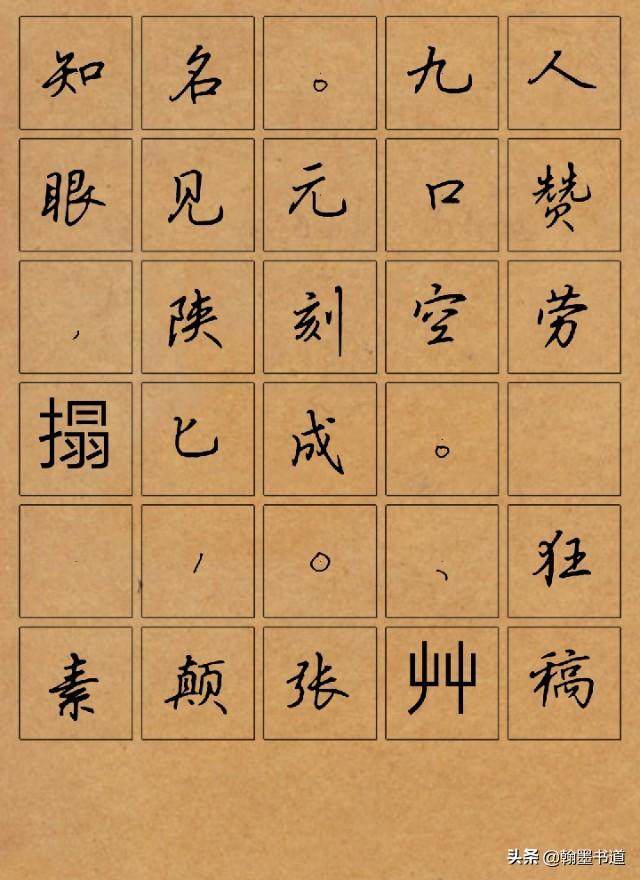 知名。九人
眼见元口赞
，陕刻空劳
搨匕成。
，。、狂
素颠张艸稿
头条 @翰墨书道